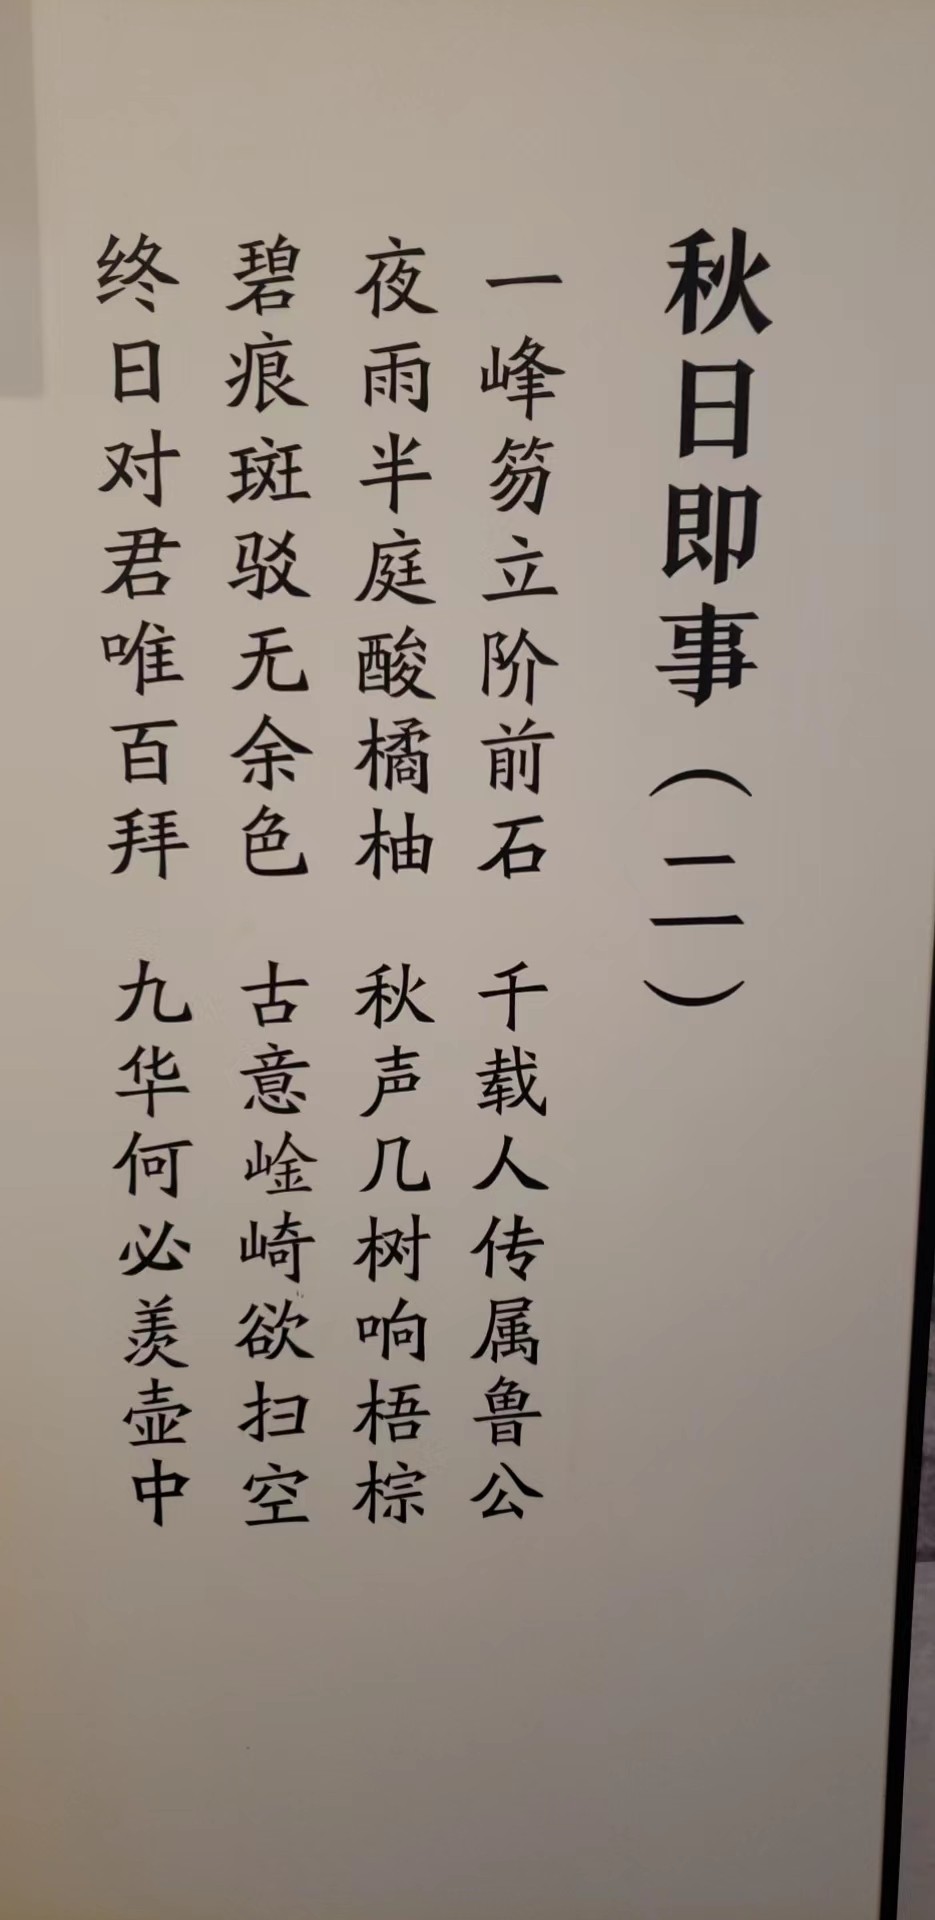 秋日即事（二）
一峰笏立阶前石 千载人传属鲁公
夜雨半庭酸橘柚 秋声几树响梧棕
碧痕斑驳无余色 古意崯崎欲扫空
终日对君唯百拜 九华何必羡壶中